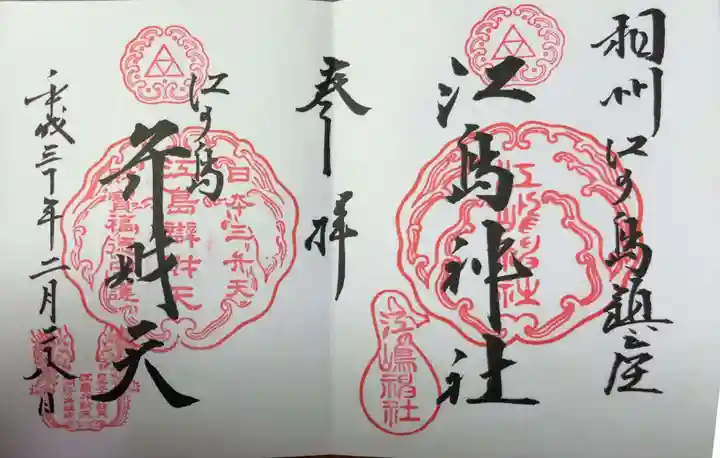 相州江の島鎮座
江島神社
江嶋神社
江嶋神社
奉拝
江の島
弁財天
日本三弁天
江島辯財天
平成三丁年二月二八日